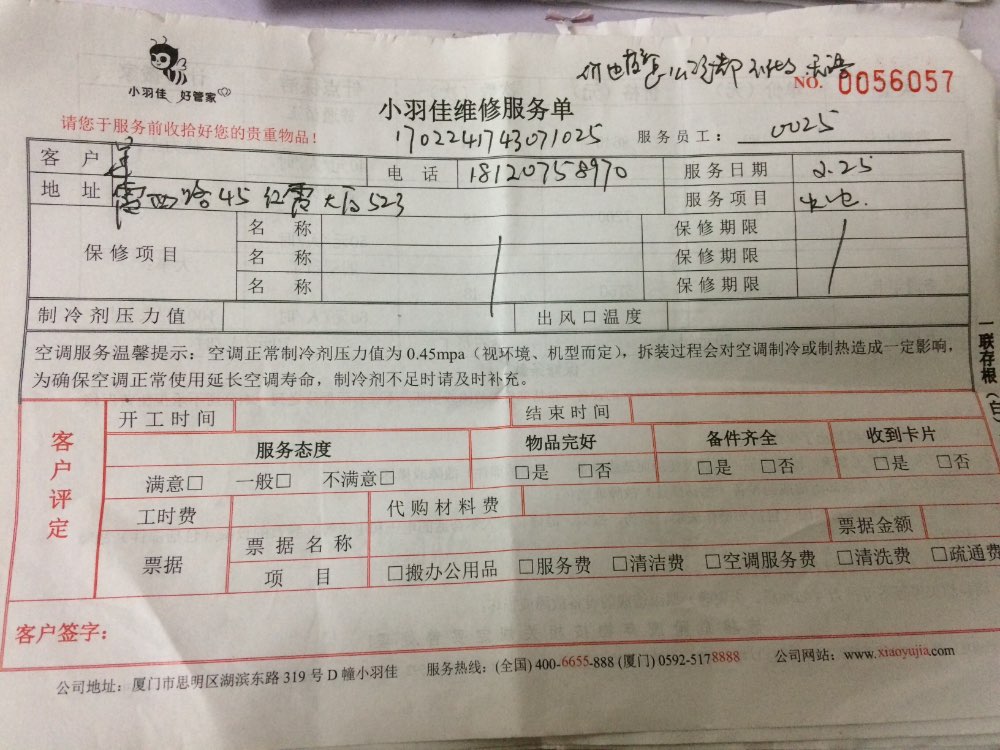 小羽佳 好管家
NO. 0056057
小羽佳维修服务单
请您于服务前收拾好您的贵重物品！
1702241743071025
服务员工： 0025
客户
电话 18120758970
服务日期 2.25
地址 45 523
服务项目
保修项目
名称 保修期限
名称 保修期限
名称 保修期限
制冷剂压力值 出风口温度
空调服务温馨提示：空调正常制冷剂压力值为0.45mpa（视环境、机型而定），拆装过程会对空调制冷或制热造成一定影响，
为确保空调正常使用延长空调寿命，制冷剂不足时请及时补充。
一联存根（白）
客户评定
开工时间 结束时间
服务态度 物品完好 备件齐全 收到卡片
满意□ 一般□ 不满意□ □是 □否 □是 □否 □是 □否
工时费 代购材料费
票据 票据名称 票据金额
项目 □搬办公用品 □服务费 □清洁费 □空调服务费 □清洗费 □疏通费
客户签字：
公司地址：厦门市思明区湖滨东路319号D幢小羽佳 服务热线：(全国) 400-6655-888 (厦门) 0592-5178888 公司网站：www.xiaoyujia.com